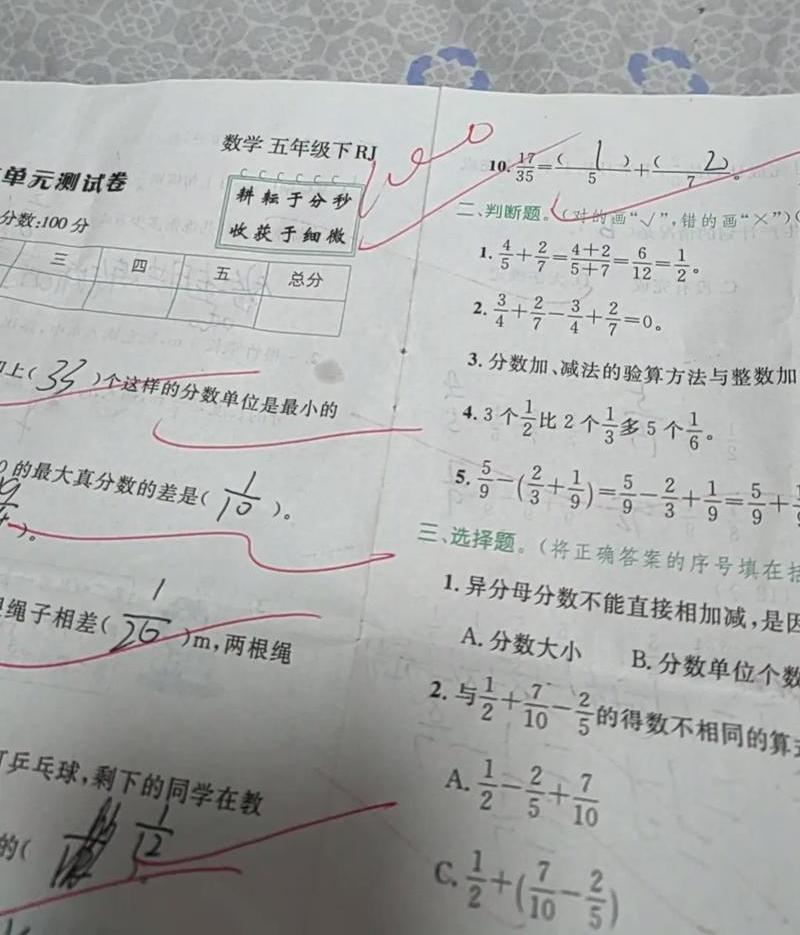 数学 五年级下RJ
单元测试卷
耕耘于分秒
收获于细微
分数:100分
三 四 五 总分
上( 33 )个这样的分数单位是最小的
的最大真分数的差是( 1/10 )。
)。
绳子相差( 1/20 )m,两根绳
乒乓球,剩下的同学在教
的( 1/12
10. 17/35=( 1 )/5+( 2 )/7。
二、判断题。(对的画“√”,错的画“×”)(
1. 4/5+2/7=4+2/5+7=6/12=1/2。
2. 3/4+2/7-3/4+2/7=0。
3. 分数加、减法的验算方法与整数加
4. 3个1/2比2个1/3多5个1/6。
5. 5/9-(2/3+1/9)=5/9-2/3+1/9=5/9+
三、选择题。(将正确答案的序号填在括
1. 异分母分数不能直接相加减,是因
A. 分数大小 B. 分数单位个数
2. 与1/2+7/10-2/5的得数不相同的算式
A. 1/2-2/5+7/10
C. 1/2+(7/10-2/5)